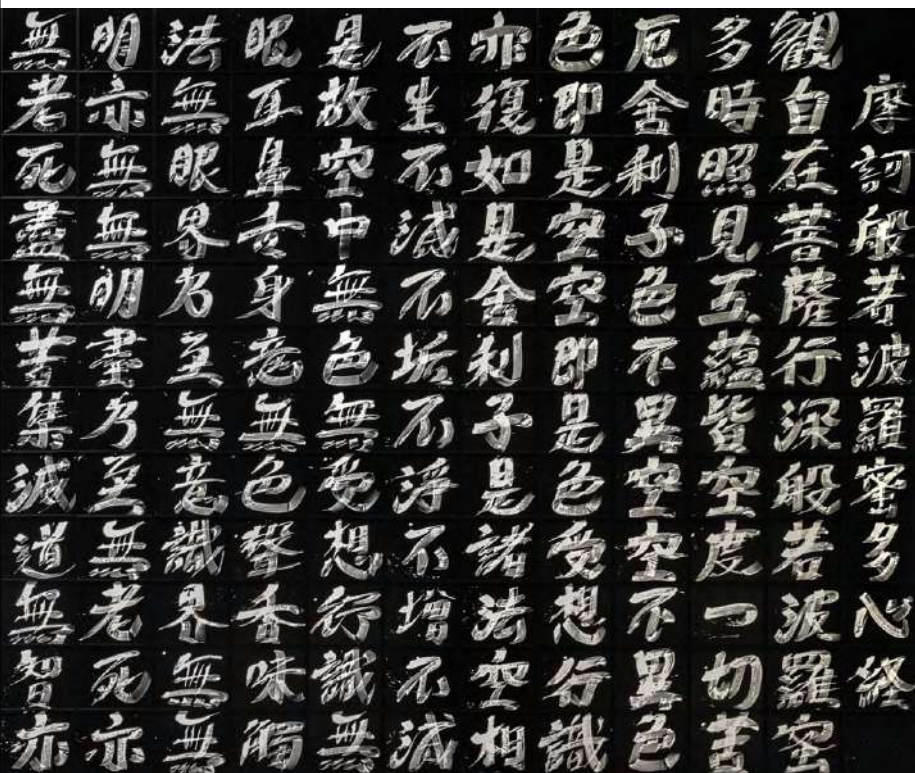 摩訶般若波羅蜜多心経
観自在菩薩行深般若波羅蜜
多時照見五蘊皆空度一切苦
厄舍利子色不異空空不異色
色即是空空即是色受想行識
亦復如是舍利子是諸法空相
不生不滅不垢不淨不增不減
是故空中無色無受想行識無
眼耳鼻舌身意無色聲香味觸
法無眼界乃至無意識界無無
明亦無無明盡乃至無老死亦
無老死盡無苦集滅道無智亦